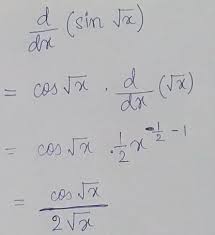 d/dx (sin √x)
= cos√x . d/dx (√x)
= cos√x . 1/2 x^(-1/2 - 1)
= cos√x / 2√x